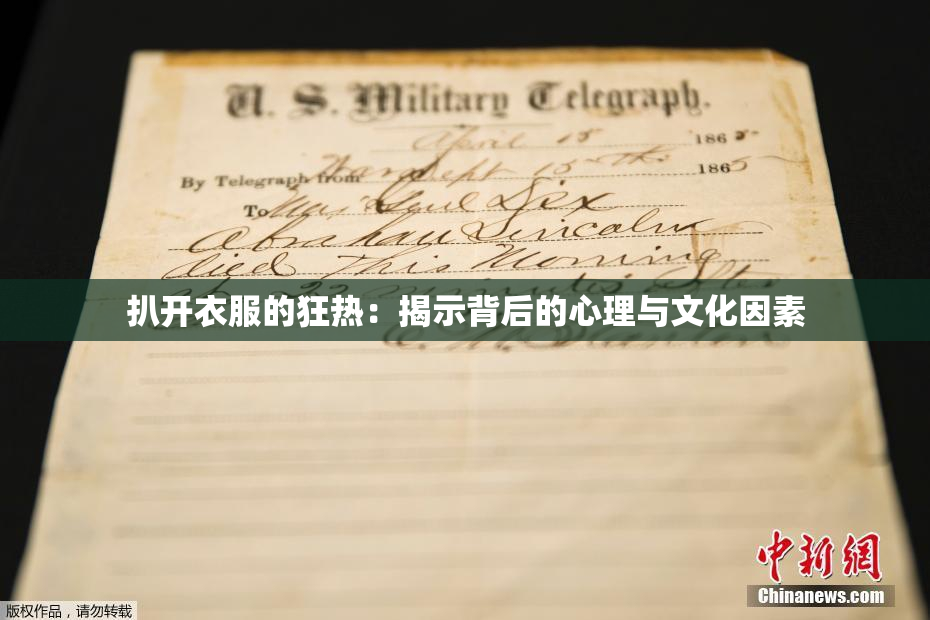 U. S. Military Telegraph.
April 15 1865
By Telegraph from War Dept 15th 1865
To Maj Genl Dix
Abraham Lincoln
died This Morning
22 minutes after
扒开衣服的狂热：揭示背后的心理与文化因素
E. M. Stanton
中新网
Chinanews.com
版权作品，请勿转载